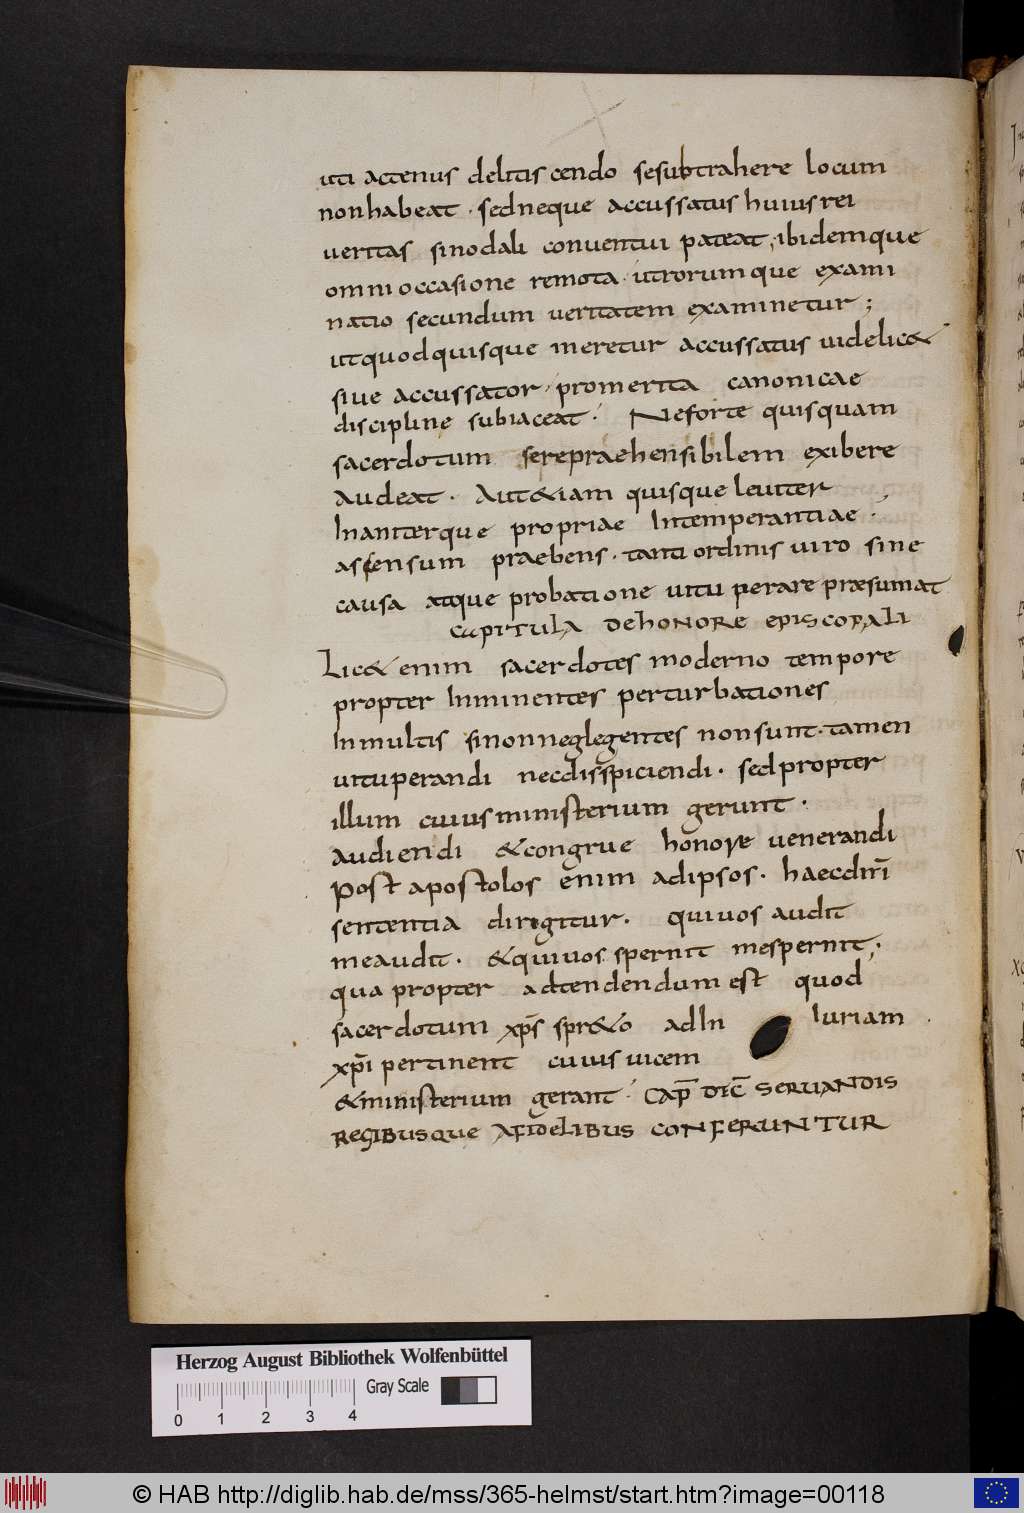 uti actenus delitiscendo sesubtrahere locum
nonhabeat. sedneque accussatus huius rei
ueritas sinodali conuentui pateat, ibidemque
omni occasione remota. utrorumque exami
natio secundum ueritatem examinetur;
utquodquisque meretur accussatus uidelic&
siue accussator. promerita canonicae
discipline subiaceat. Neforte quisquam
sacerdotum serepraehensibilem exibere
audeat. Aut&iam quisque leuiter
Inaniterque propriae Intemperantiae.
ascensum praebens. tanti ordinis uiro sine
causa atque probatione uituperare praesumat
CAPITULA DEHONORE EPISCOPALI
Lic& enim sacerdotes moderno tempore
propter Inminentes perturbationes
Inmultis sinonneglegentes nonsunt. tamen
uituperandi necdisspiciendi. sedpropter
illum cuiusministerium gerunt.
audiendi &congrue honore uenerandi
Post apostolos enim adipsos. haecdiri
sententia dirigitur. quiuos audit
meaudit. &quiuos spernit mespernit;
qua propter adtendendum est quod
sacerdotum xp̄s spr&o adIn Iuriam.
xp̄i pertinent cuius uicem
&ministerium gerant. CAP̄ DIC̄ SERUANDIS
REGIBUSQUE AFIDELIBUS CONFERUNTUR
Herzog August Bibliothek Wolfenbüttel
Gray Scale
0 1 2 3 4
© HAB http://diglib.hab.de/mss/365-helmst/start.htm?image=00118